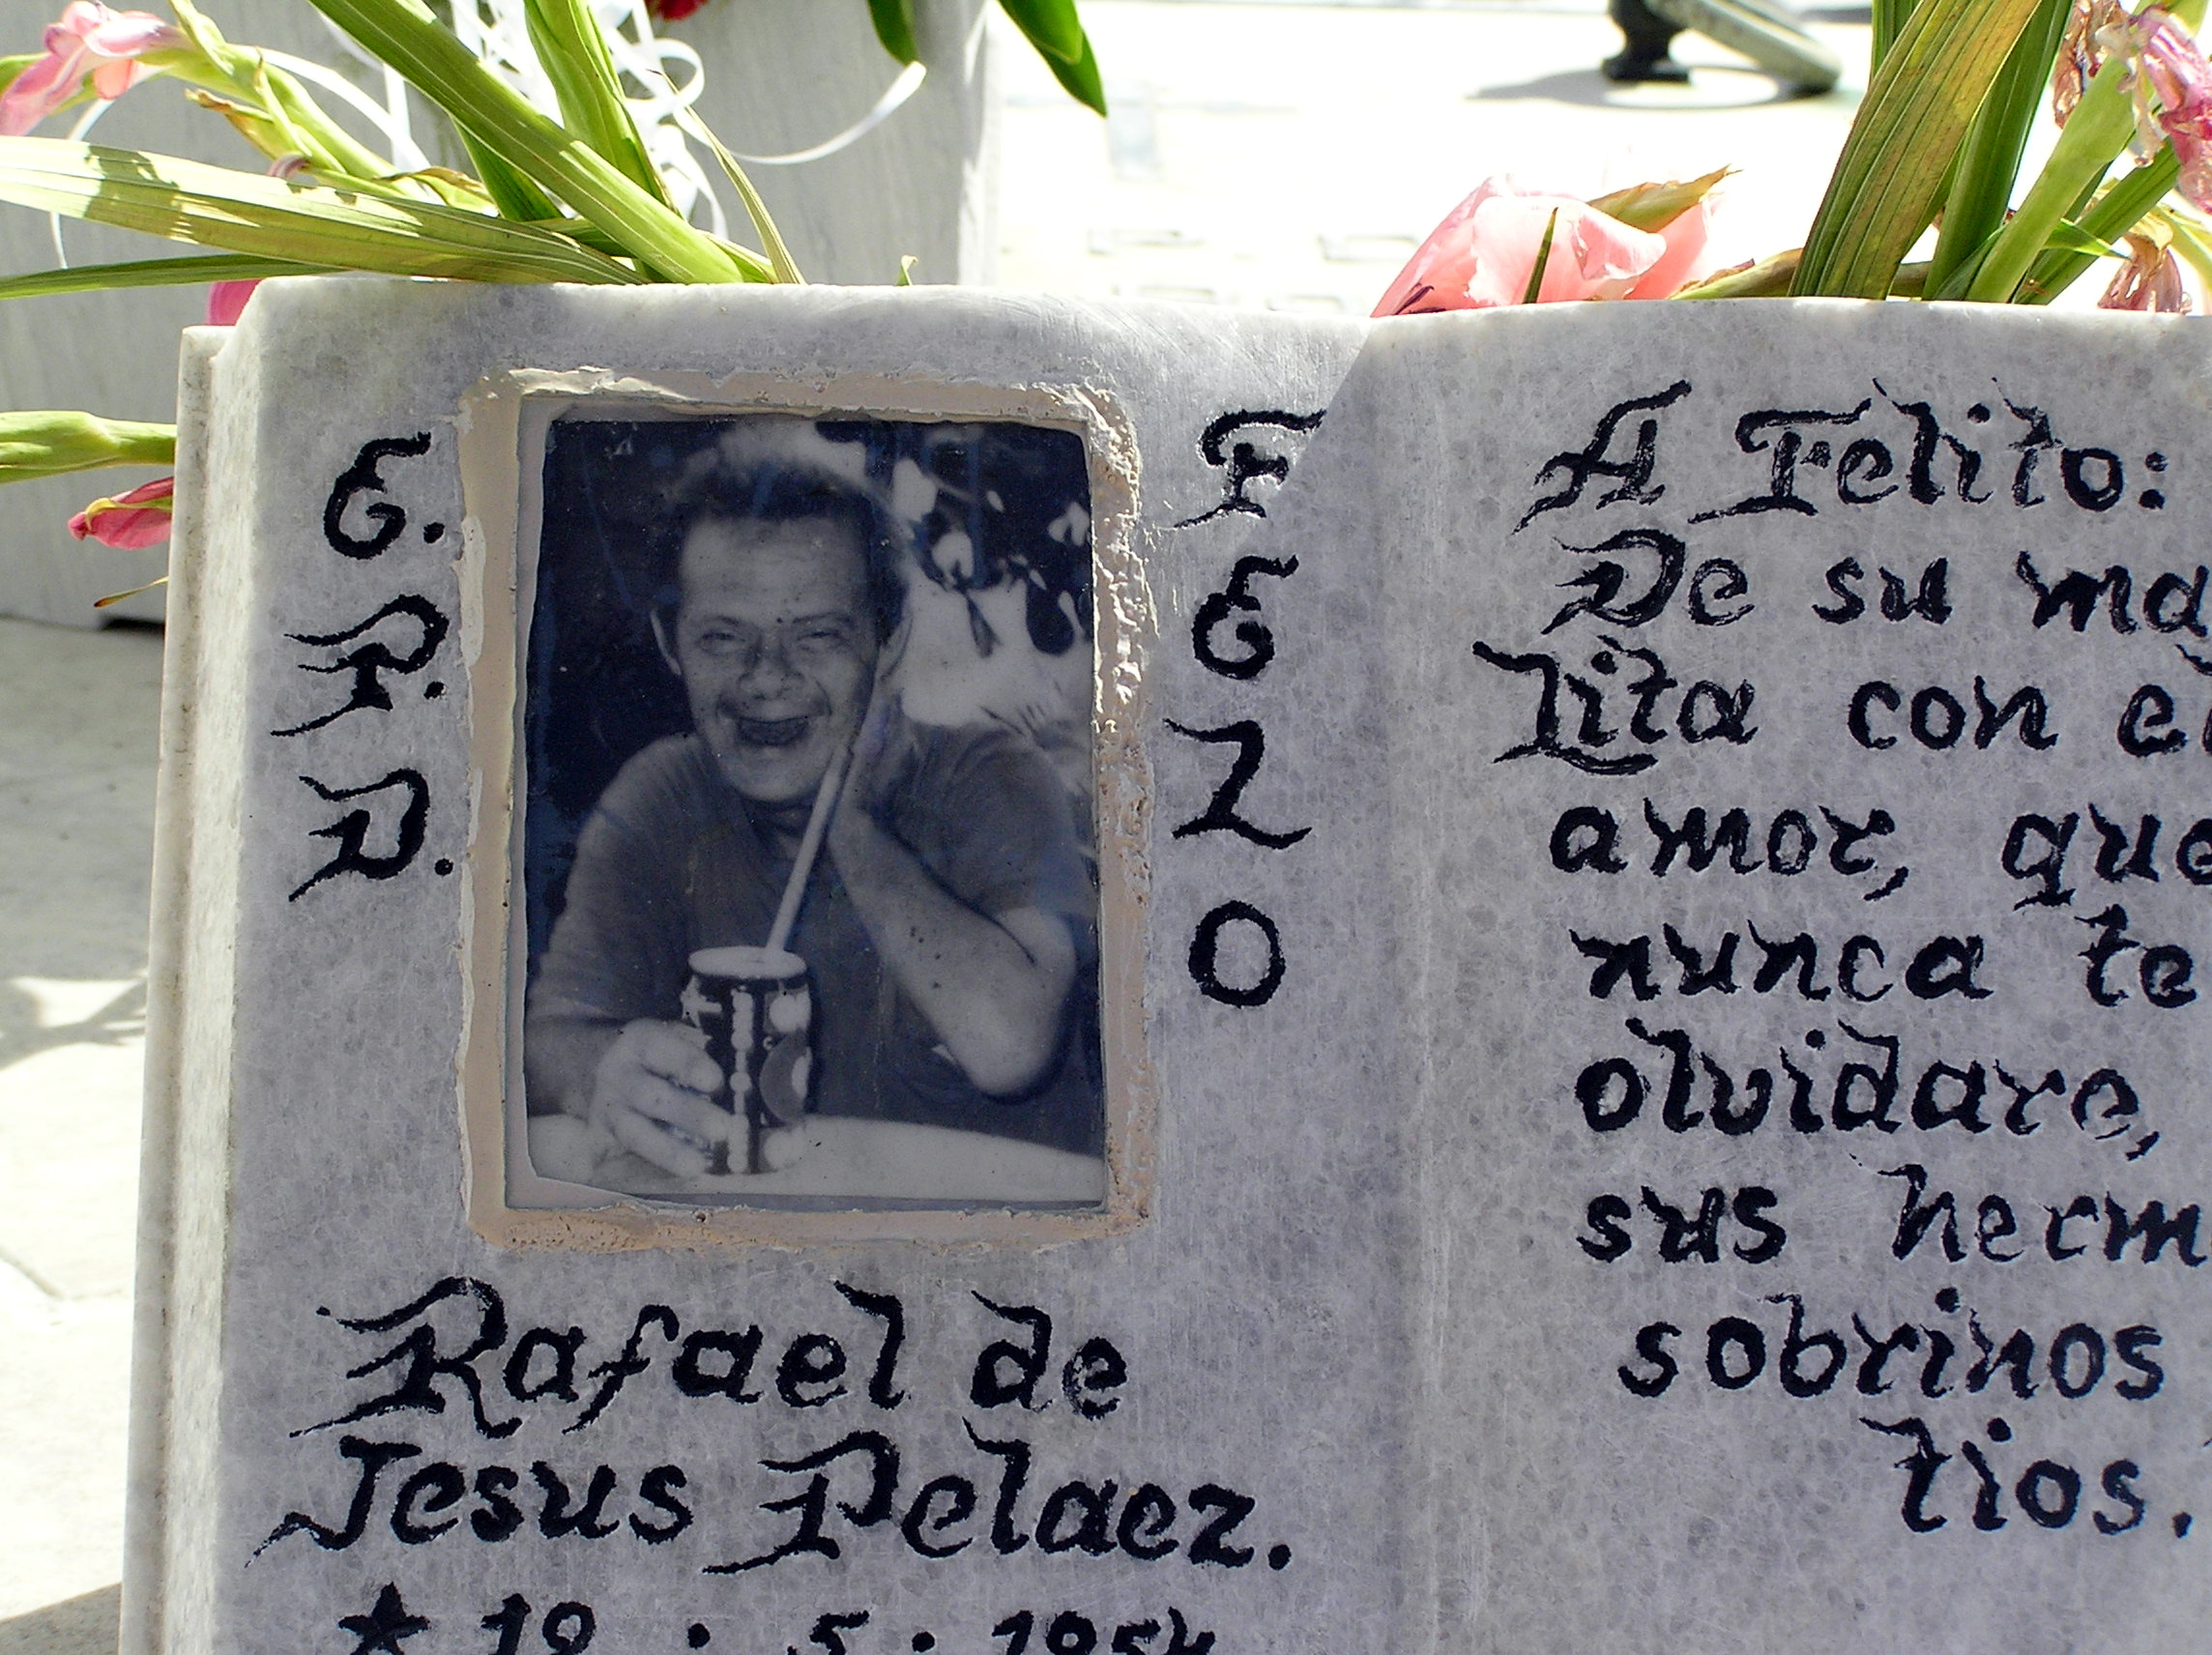 E.
P.
D.
F
E
L
O
Rafael de
Jesus Pelaez.
19 . 5 . 1954
A Felito:
De su ma
Lita con el
amor, que
nunca te
olvidare,
sus herm
sobrinos
tios.